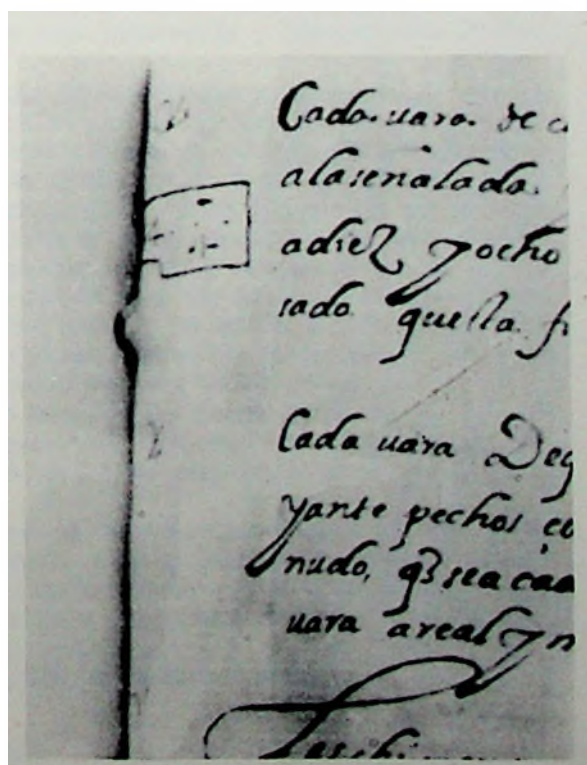 Cada uara de
alaseñalada
adiez y ocho
sado questa
Cada uara De
yante pechos
nudo, q̃ sea cada
uara a real y